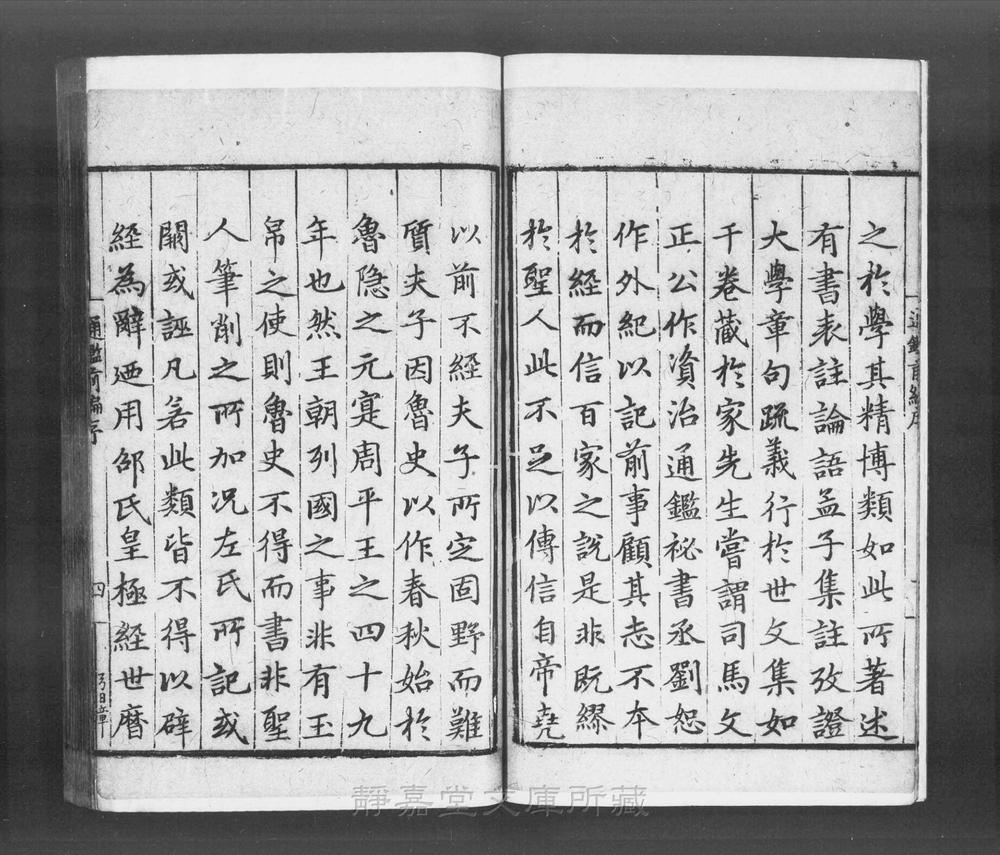 之於學其精博類如此所著述
有書表註論語孟子集註攷證
大學章句疏義行於世文集如
干卷蔵於家先生嘗謂司馬文
正公作資治通鑑祕書丞劉恕
作外紀以記前事顧其志不夲
於經而信百家之說是非既繆
於聖人此不足以傳信自帝堯
以前不經夫子所定固野而難
質夫子因魯史以作春秋始於
魯隐之元寔周平王之四十九
年也然王朝列國之事非有玉
帛之使則魯史不得而書非聖
人筆削之所加况左氏所記或
闕或誣凡若此類皆不得以辟
經為辭廼用邵氏皇極經世曆
通鑑前編序
四
靜嘉堂文庫所藏